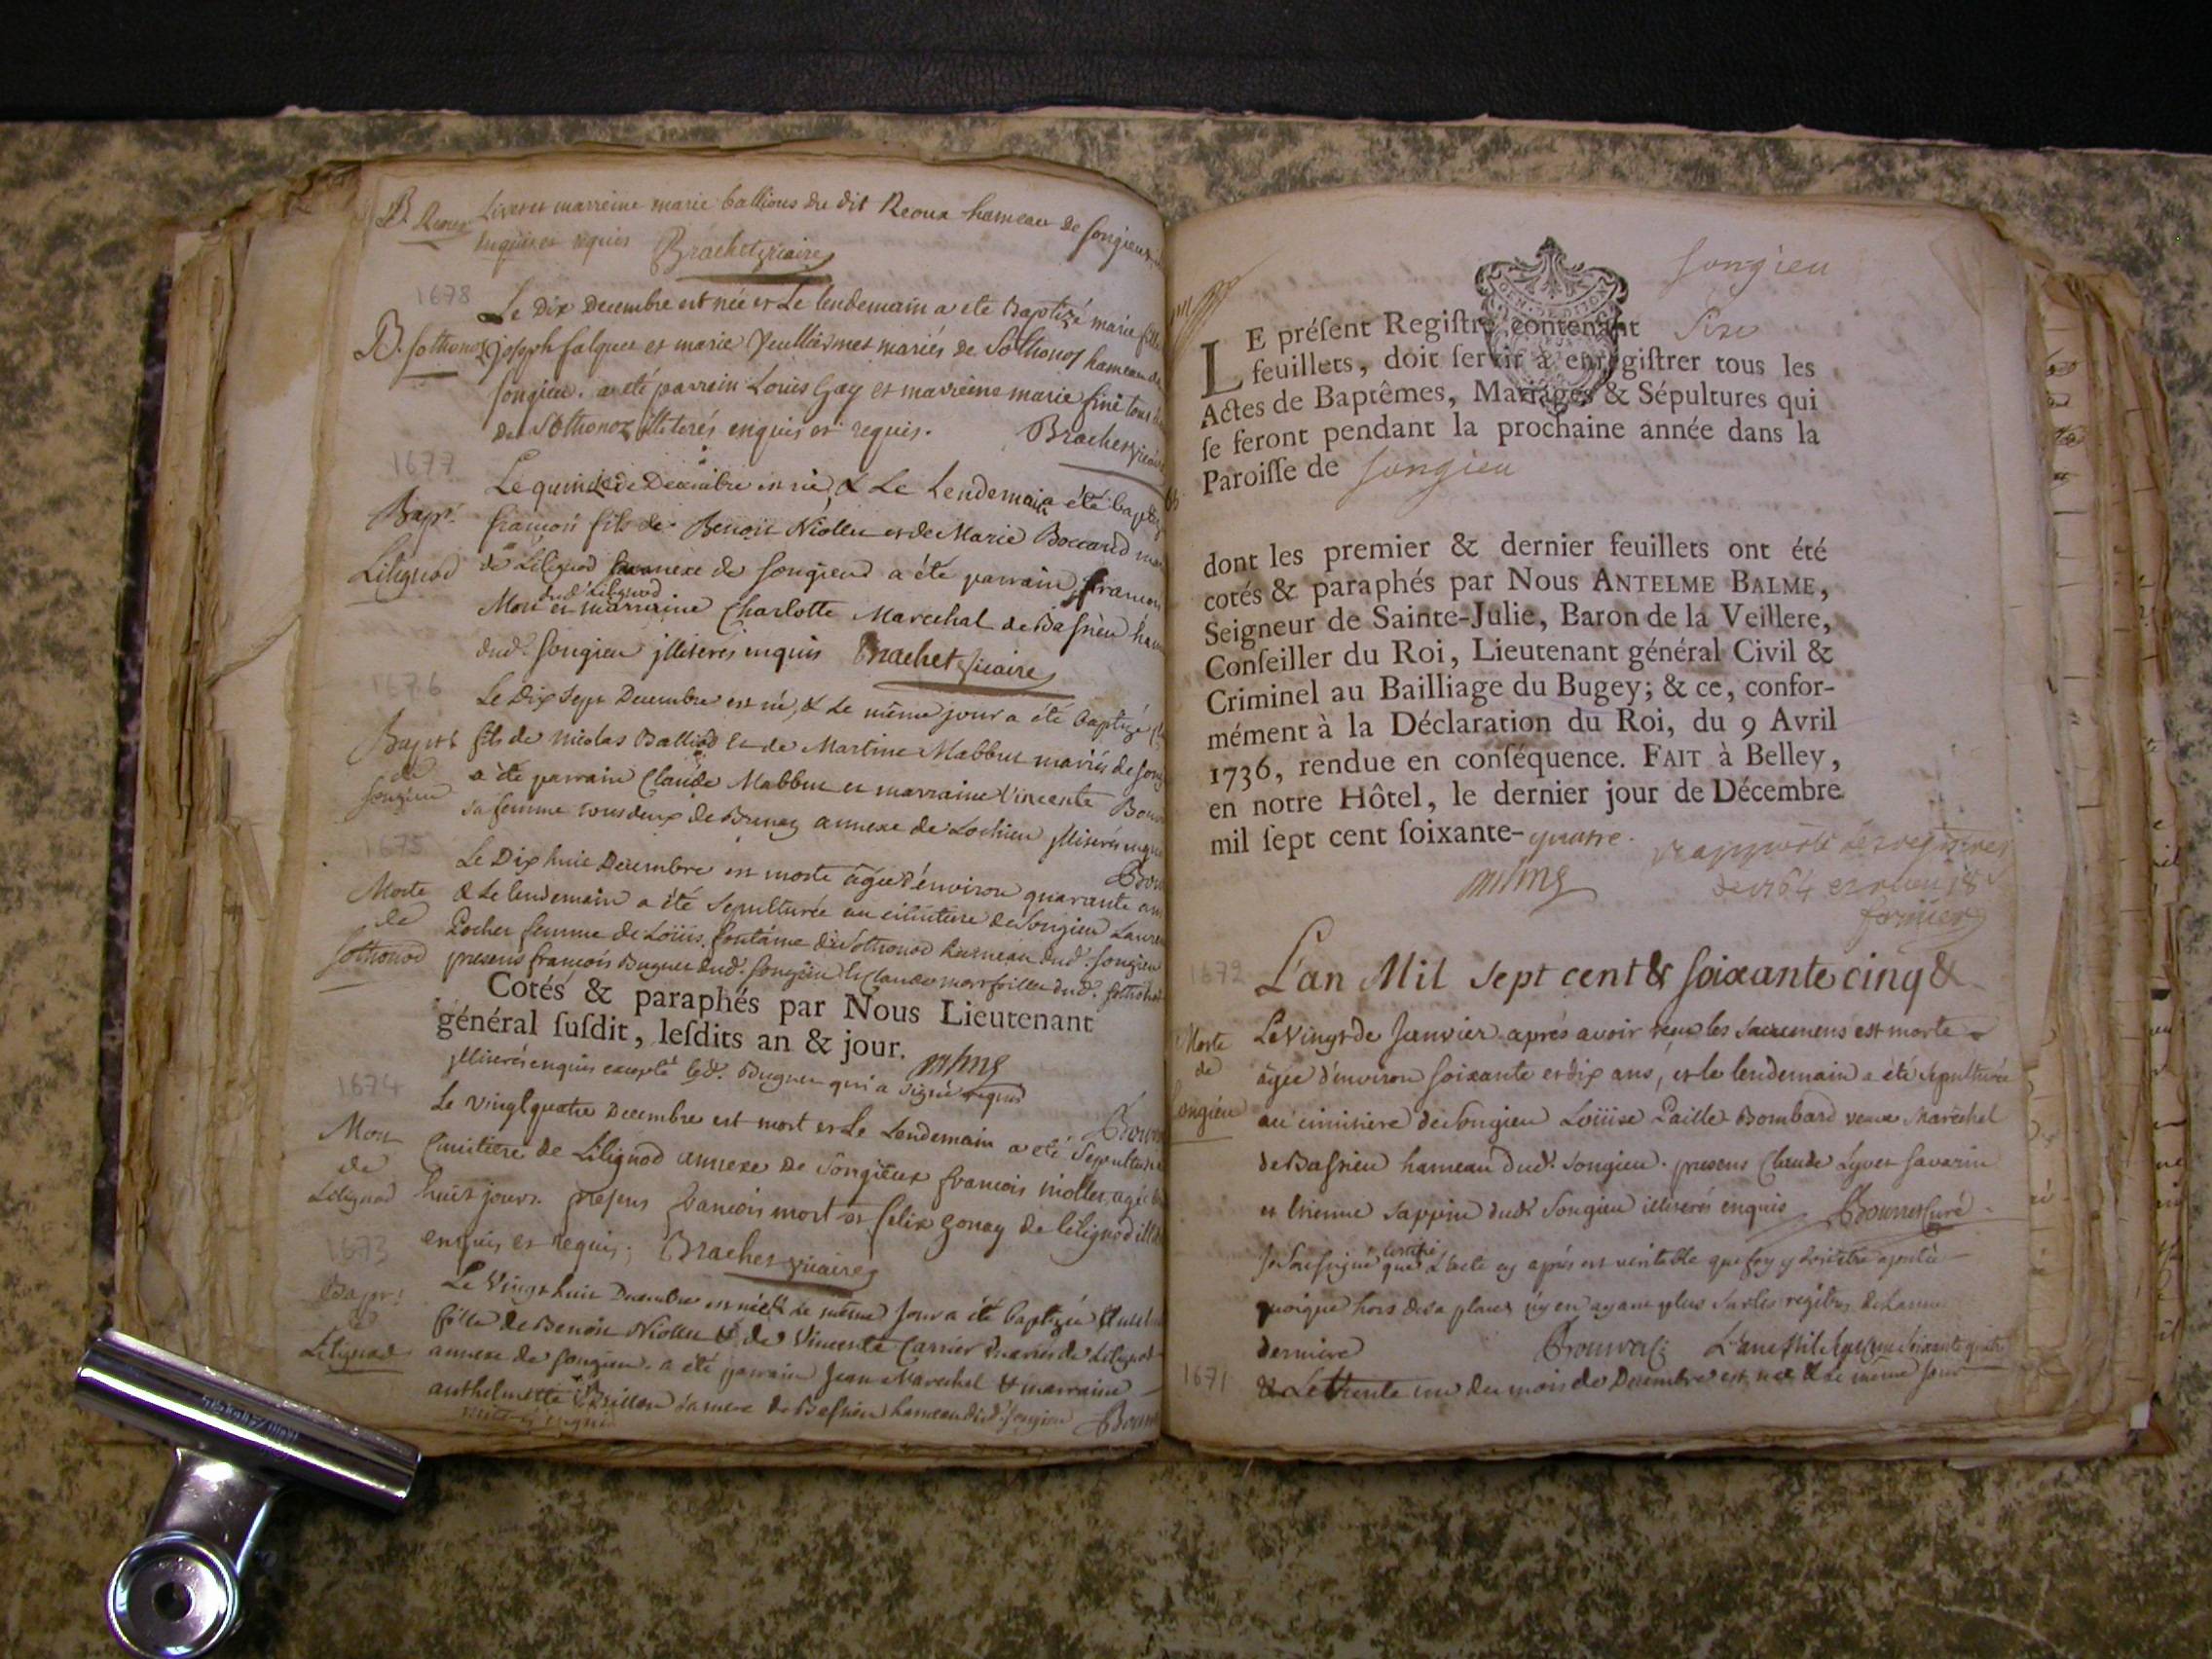 B. Reoux
Livet et marreine marie ballions du dit Reoux hameau de songieux
enquis et requis Brachet vicaire
1678
B. Sothonoz
Le Dix Decembre est née et Le lendemain a ete Baptizé marie fille
joseph falquet et marie Vuilliermet mariés de Sothonoz hameau de
songieu. a eté parrein Louis Gay et marreine marie finé tous
de Sothonoz illiterés enquis et requis. Brachet vicaire
1677
Bapt.
Lilignod
Le quinze de Decembre est né, & Le Lendemain a été baptizé
francois fils de Benoit Niollet et de Marie Boccard
de Lilignod annexe de songieu a été parrain francois
Mort dud. Lilignod et marraine Charlotte Marechal de Bassieu
dud. songieu jlliterés enquis Brachet vicaire
1676
Bapt.
de
songieu
Le Dix sept Decembre est né, & Le même jour a été baptizé
fils de nicolas Balliod et de Martine Mabbut mariés de
a été parrain Claude Mabbut et marraine Vincente
sa femme tous deux de Brenaz annexe de Lochieu jlliterés
1675
Morte
de
sothonod
Le Dix huit Decembre est morte agée d'environ quarante ans
& Le lendemain a été sepulturée au cimitiere de Songieu
Pocher femme de Loüis fontaine de Sothonod hameau dud. songieu
presens francois Buguet dud. songieu et Claude marfeillé dud.
Cotés & paraphés par Nous Lieutenant
général ſuſdit, leſdits an & jour.
jlliterés enquis excepté led. Buguet qui a signé requis
1674
Mort
de
Lilignod
Le vingt quatre Decembre est mort et Le Lendemain a eté Sepulturé
Cimitiere de Lilignod annexe de Songieux francois niollet, agé
huit jours. presens francois mort et felix gonay de lilignod
enquis et requis. Brachet vicaire
1673
Bapt.
de
Lilignod
Le Vingt huit Decembre est née & Le même Jour a été baptizée
fille de Benoit Niollet & de Vincente Carrier mariés de Lilignod
annexe de songieu. a été parrain Jean Marechal & marraine
anthelmette Brillon sa mere de Bassieu hameau dud. songieu
enquis
songieu
LE préſent Regiſtre contenant
feuillets, doit ſervir à enregiſtrer tous les
Actes de Baptêmes, Mariages & Sépultures qui
ſe feront pendant la prochaine année dans la
Paroiſſe de songieu
dont les premier & dernier feuillets ont été
cotés & paraphés par Nous ANTELME BALME,
Seigneur de Sainte-Julie, Baron de la Veillere,
Conſeiller du Roi, Lieutenant général Civil &
Criminel au Bailliage du Bugey; & ce, confor-
mément à la Déclaration du Roi, du 9 Avril
1736, rendue en conſéquence. FAIT à Belley,
en notre Hôtel, le dernier jour de Décembre
mil ſept cent ſoixante-quatre.
rapporté les registres
de 1764
1672
L'an Mil sept cent & soixante cinq &
Morte
de
Songieu
Le Vingt de Janvier aprés avoir reçu les sacremens est morte
agée d'environ soixante et dix ans, et le lendemain a été sepulturée
au cimitiere de Songieu Loüise Paille Bombard veuve Maréchal
de Bassieu hameau dud. songieu. presens Claude Lyvet savarin
et Etienne sappin dud. Songieu illiterés enquis Bouvret Curé
Je Soussigné certifie que L'acte cy aprés est veritable que foy y doit etre ajoutée
quoique hors de sa place n'y en ayant plus sur les registres de L'année
derniere L'an Mil Sept cent Soixante quatre
1671
& Le trente un du mois de Decembre est née & Le même Jour